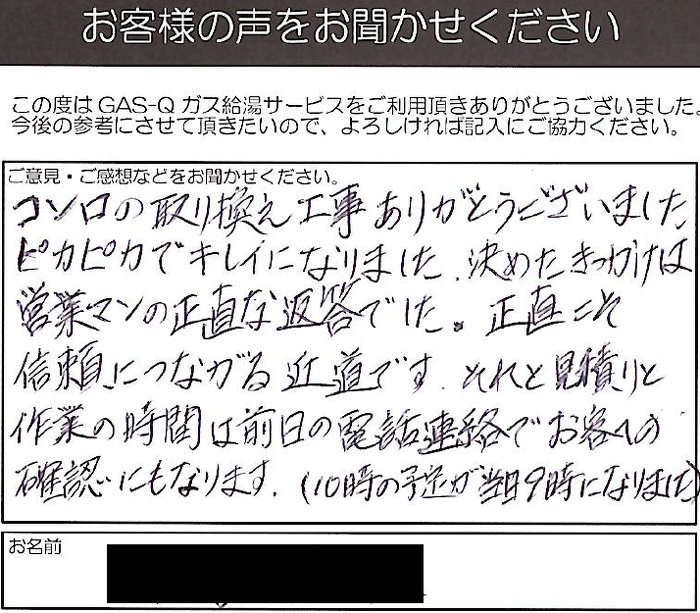 お客様の声をお聞かせください
この度はGAS-Qガス給湯サービスをご利用頂きありがとうございました。
今後の参考にさせて頂きたいので、よろしければ記入にご協力ください。
ご意見・ご感想などをお聞かせください。
コンロの取り換え工事ありがとうございました。
ピカピカでキレイになりました。決めたきっかけは
営業マンの正直な返答でした。正直こそ
信頼につながる近道です。それと見積りと
作業の時間は前日の電話連絡でお客への
確認にもなります。(10時の予定が当日9時になりました)
お名前